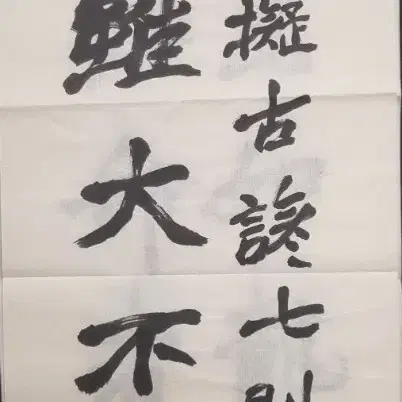 擬古諺七
雖大不